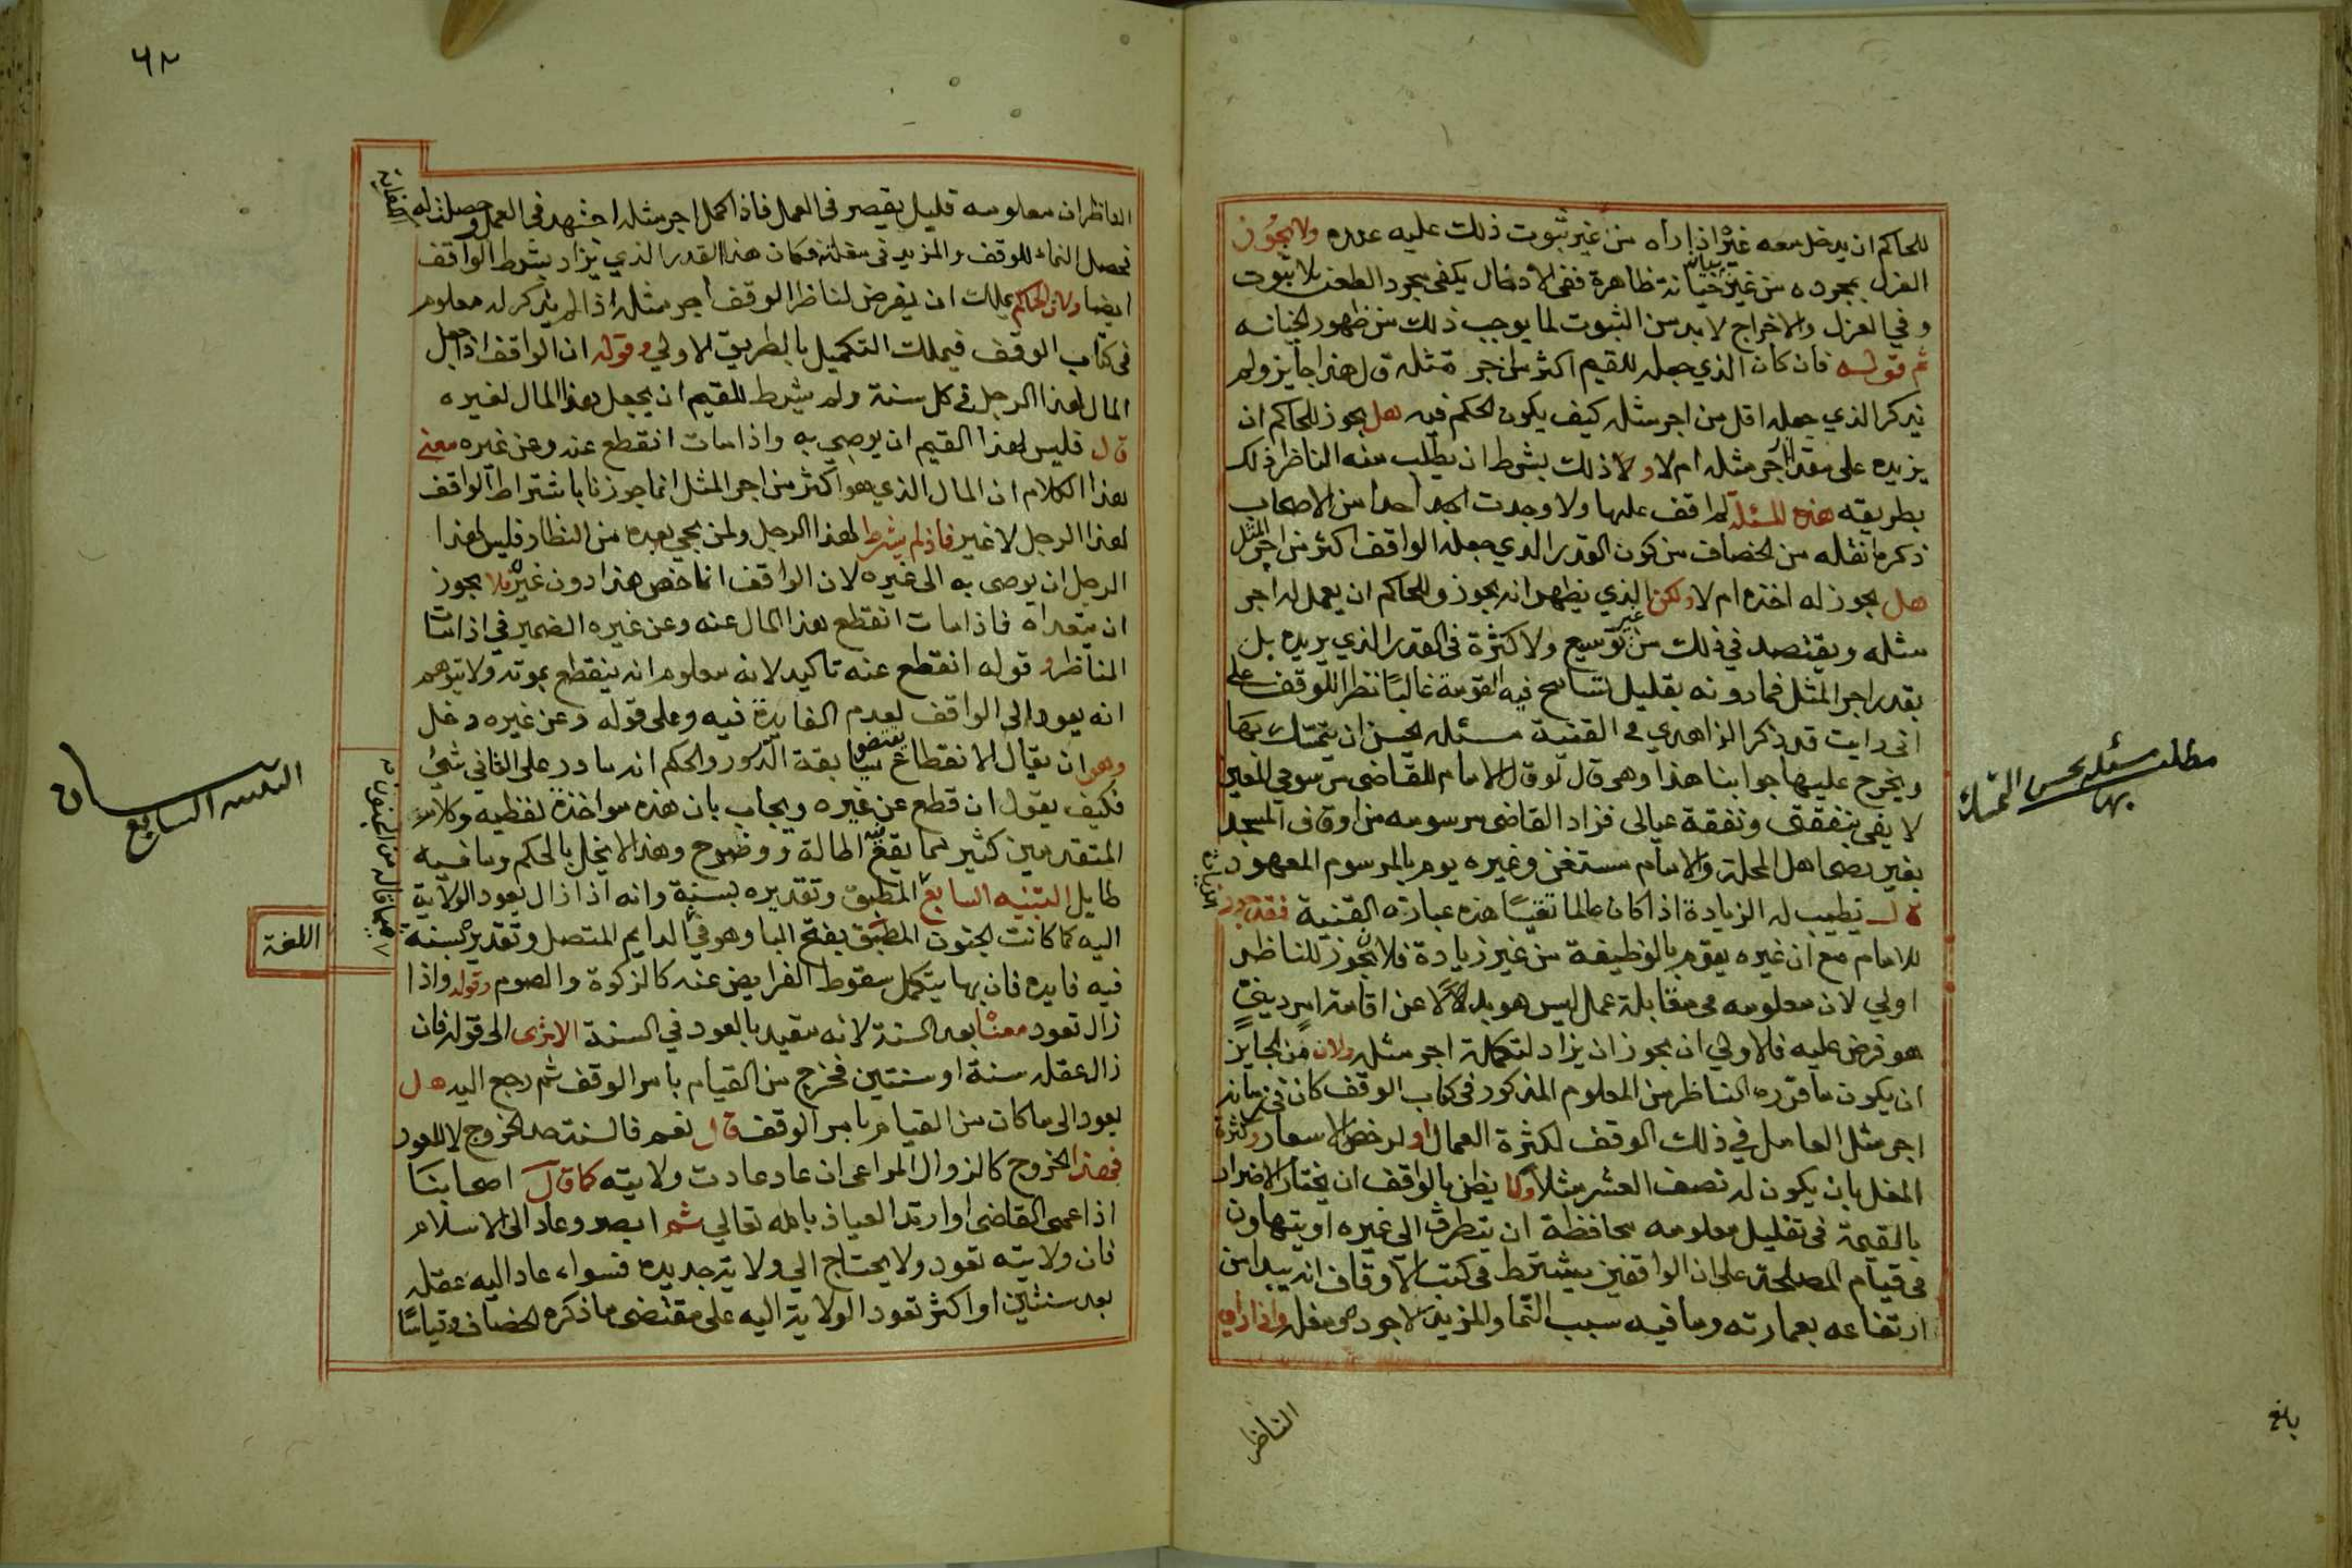 للحاكم ان يدخل معه غيره اذا رآه من غير ثبوت ذلك عليه عنده ولا يجوز
العزل بمجرده من غير خيانة ظاهرة ففي الادخال يكفي مجرد الطعن بلا ثبوت
وفي العزل والاخراج لا بد من الثبوت لما يوجب ذلك من ظهور الخيانه
ثم قوله فان كان الذي جعله للقيم اكثر من اجر مثله قال هذا جايز ولم
يذكر الذي جعله اقل من اجر مثله كيف يكون الحكم فيه هل يجوز للحاكم ان
يزيده على مقدار اجر مثله ام لا ولا ذلك بشرط ان يطلب منه الناظر ذلك
بطريقه هذه المسئلة لم اقف عليها ولا وجدت احدا من الاصحاب
ذكر ما نقله من الخصاف من كون القدر الذي جعله الواقف اكثر من اجر المثل
هل يجوز له اخذه ام لا ولكن الذي يظهر انه يجوز وللحاكم ان يعمل له اجر
مثله ويقتصد في ذلك من غير توسيع ولا كثرة في القدر الذي يريده بل
بقدر اجر المثل فما دونه بقليل تتسامح فيه القومة غالبا نظرا للوقف على
اني رايت قد ذكر الزاهدي في القنية مسئلة يحسن ان يتمسك بها
ويخرج عليها جوابنا هذا وهو قال لو قال الامام للقاضي مرسومي المعين
لا يفي بنفقتي ونفقة عيالي فزاد القاضي مرسومه من اوقاف المسجد
بغير رضى اهل المحلة والامام مستغن وغيره يوم بالمرسوم المعهود
قال تطيب له الزيادة اذا كان عالما تقيا هذه عبارة القنية فقد جوز الزيادة
للامام مع ان غيره يقوم بالوظيفة من غير زيادة فلان يجوز للناظر
اولي لان معلومه في مقابلة عمل ليس هو بدلا عن اقامة امر ديني
هو فرض عليه فالاولي ان يجوز ان يزاد لتكملة اجر مثله ولان من الجايز
ان يكون ما قرره للناظر من المعلوم المذكور في كتاب الوقف كان في زمانه
اجر مثل العامل في ذلك الوقف لكثرة العمال او لرخص الاسعار وكثرة
المغل بان يكون له نصف العشر مثلا ولا يظن بالواقف ان يختار الاضرار
بالقيمة في تقليل معلومه محافظة ان يتطرق الى غيره او يتهاون
في قيام المصلحة على ان الواقفين يشترط في كتب الاوقاف انه يبدا من
ارتفاعه بعمارته وما فيه سبب النما والمزيد لاجوده مغله واذا راي
الناظر
مطلب مسئلة يحسن التمسك
بها
بلغ
٦٢
الناظر ان معلومه قليل يقصر في العمل فاذا كمل اجر مثله اجتهد في العمل وحصلت له الكفاية
تحصل النماء للوقف والمزيد في مغلته فكان هذا القدر الذي يزاد بشرط الواقف
ايضا ولان الحاكم يملك ان يفرض لناظر الوقف اجر مثله اذا لم يذكر له معلوم
في كتاب الوقف فيملك التكميل بالطريق الاولي وقوله ان الواقف اذا جعل
المال لهذا الرجل في كل سنة ولم يشرط للقيم ان يجعل هذا المال لغيره
قال فليس لهذا القيم ان يوصي به واذا مات انقطع عنه وعن غيره معنى
هذا الكلام ان المال الذي هو اكثر من اجر المثل انما جوزنا باشتراط الواقف
لهذا الرجل لا غير فاذا لم يشرط لهذا الرجل ولمن يجي بعده من النظار فليس لهذا
الرجل ان يوصي به الى غيره لان الواقف انما خص هذا دون غيره فلا يجوز
ان يتعداه فاذا مات انقطع هذا المال عنه وعن غيره الضمير في اذا مات
الناظر وقوله انقطع عنه تاكيد لانه معلوم انه ينقطع بموته ولا يتوهم
انه يعود الى الواقف لعدم الفايدة فيه وعلى قوله وعن غيره دخل
وهو ان يقال الانقطاع يقتضي سابقة الدور والحكم انه ما در على الثاني شئ
فكيف يقول ان قطع عن غيره ويجاب بان هذه مواخذة لفظيه وكلام
المتقدمين كثير مما يقع فيه اطالة ووضوح وهذا لا يخل بالحكم وما فيه
طايل التنبيه السابع المطبق وتقديره بسنة وانه اذا زال يعود الولاية
اليه كما كانت الجنون المطبق بفتح البا وهو في الدايم المتصل وتقديره بسنة
فيه فايده فان بها يتكمل سقوط الفرايض عنه كالزكوة والصوم وقوله واذا
زال تعود معناه بعد السنة لانه مقيد بالعود في السنة الا ترى الى قوله فان
زال عقله سنة او سنتين فخرج من القيام بامر الوقف ثم رجع اليه هل
يعود الى ما كان من القيام بامر الوقف قال نعم فالسنة حد الخروج لا للعود
فهذا الخروج كالزوال المراعى ان عاد عادت ولايته كما قال اصحابنا
اذا عمى القاضي او ارتد العياذ بالله تعالي ثم ابصر وعاد الى الاسلام
فان ولايته تعود ولا يحتاج الي ولاية جديده فسواء عاد اليه عقله
بعد سنتين او اكثر تعود الولاية اليه على مقتضى ما ذكره الخصاف وقياسا
فيما قاله من الجنون
اللغة
التنبيه السابع